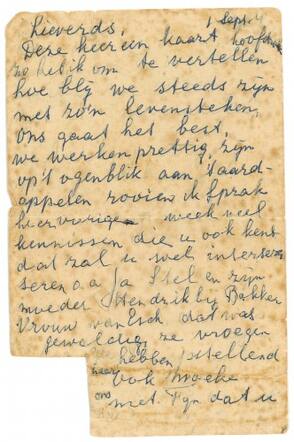 Lieverds, 1 Sept.
Deze keer een kaart hoofd
zo heb ik om te vertellen
hoe bly we steeds zyn
met zo'n levensteken,
ons gaat het best,
we werken prettig, zyn
op't ogenblik aan 't aard-
appelen rooien ik sprak
hier vorige week veel
kennissen die u ook kent
dat zal u wel interes
seren o.a Ja Stel en zyn
moeder Hendrik by Bakker
Vrouw van Esch dat was
geweldig, ze vroegen
hebben
naar ook moeke
ons met. Fyn dat u